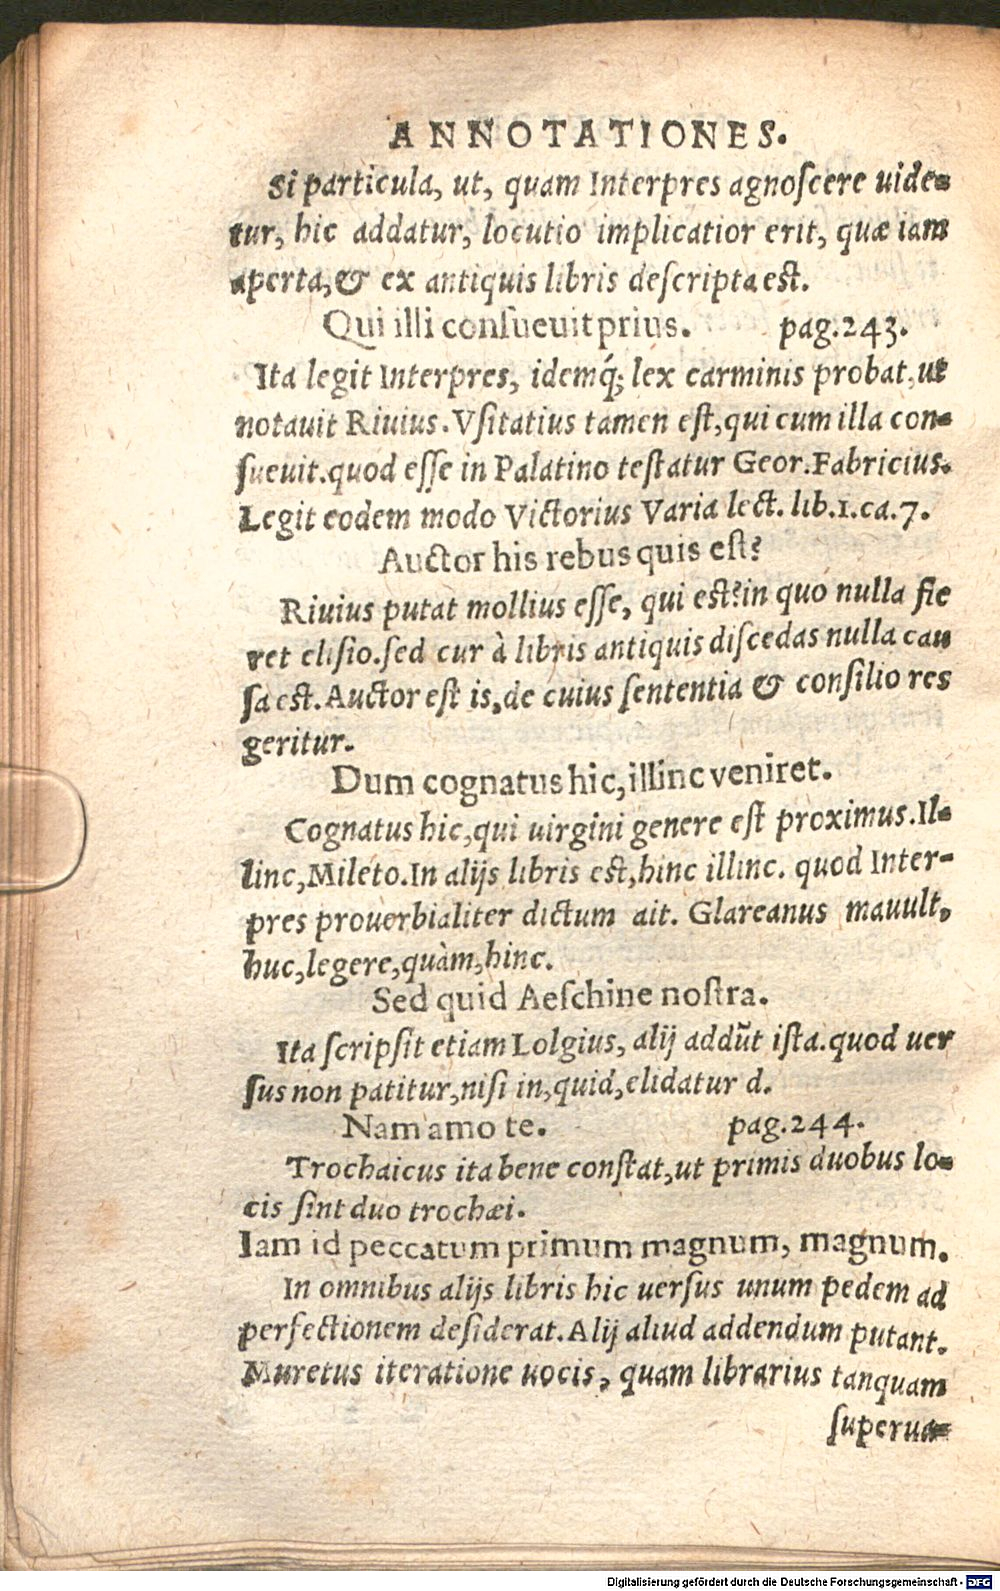 ANNOTATIONES.
Si particula, ut, quam Interpres agnoſcere uide-
tur, hic addatur, locutio implicatior erit, quæ iam
aperta, & ex antiquis libris deſcripta est.
Qui illi conſueuit prius. pag.243.
Ita legit Interpres, idemq́; lex carminis probat, ut
notauit Riuius. Vſitatius tamen eſt, qui cum illa con-
ſueuit. quod eſſe in Palatino teſtatur Geor. Fabricius.
Legit eodem modo Victorius Varia lect. lib.1.ca.7.
Auctor his rebus quis eſt?
Riuius putat mollius eſſe, qui est? in quo nulla fie
ret eliſio. ſed cur à libris antiquis diſcedas nulla cau
ſa est. Auctor eſt is, de cuius ſententia & conſilio res
geritur.
Dum cognatus hic, illinc veniret.
Cognatus hic, qui uirgini genere eſt proximus. Il-
linc, Mileto. In alijs libris est, hinc illinc. quod Inter-
pres prouerbialiter dictum ait. Glareanus mauult,
huc, legere, quàm, hinc.
Sed quid Aeſchine noſtra.
Ita ſcripſit etiam Lolgius, alij addũt iſta. quod uer
ſus non patitur, niſi in, quid, elidatur d.
Nam amo te. pag.244.
Trochaicus ita bene conſtat, ut primis duobus lo-
cis ſint duo trochæi.
Iam id peccatum primum magnum, magnum.
In omnibus alijs libris hic uerſus unum pedem ad
perfectionem deſiderat. Alij aliud addendum putant.
Muretus iteratione uocis, quam librarius tanquam
ſuperua-
Digitalisierung gefördert durch die Deutsche Forschungsgemeinschaft - DFG